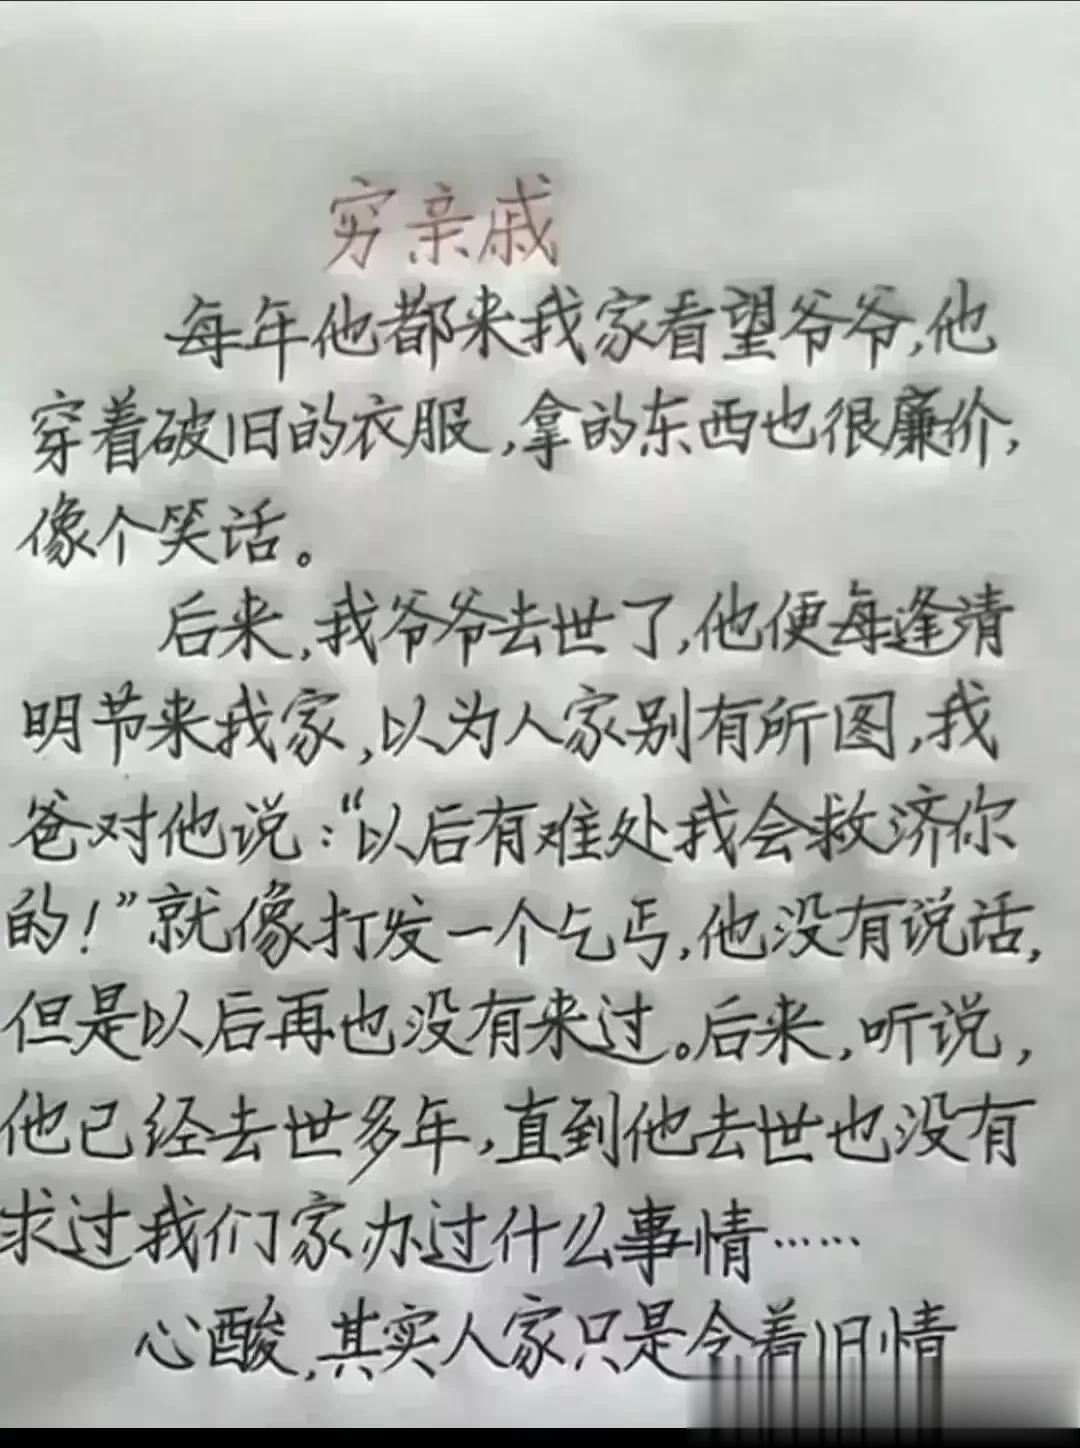 穷亲戚
每年他都来我家看望爷爷,他
穿着破旧的衣服,拿的东西也很廉价,
像个笑话。
后来,我爷爷去世了,他便每逢清
明节来我家,以为人家别有所图,我
爸对他说:“以后有难处我会救济你
的!”就像打发一个乞丐,他没有说话,
但是以后再也没有来过。后来,听说,
他已经去世多年,直到他去世也没有
求过我们家办过什么事情……
心酸,其实人家只是念着旧情